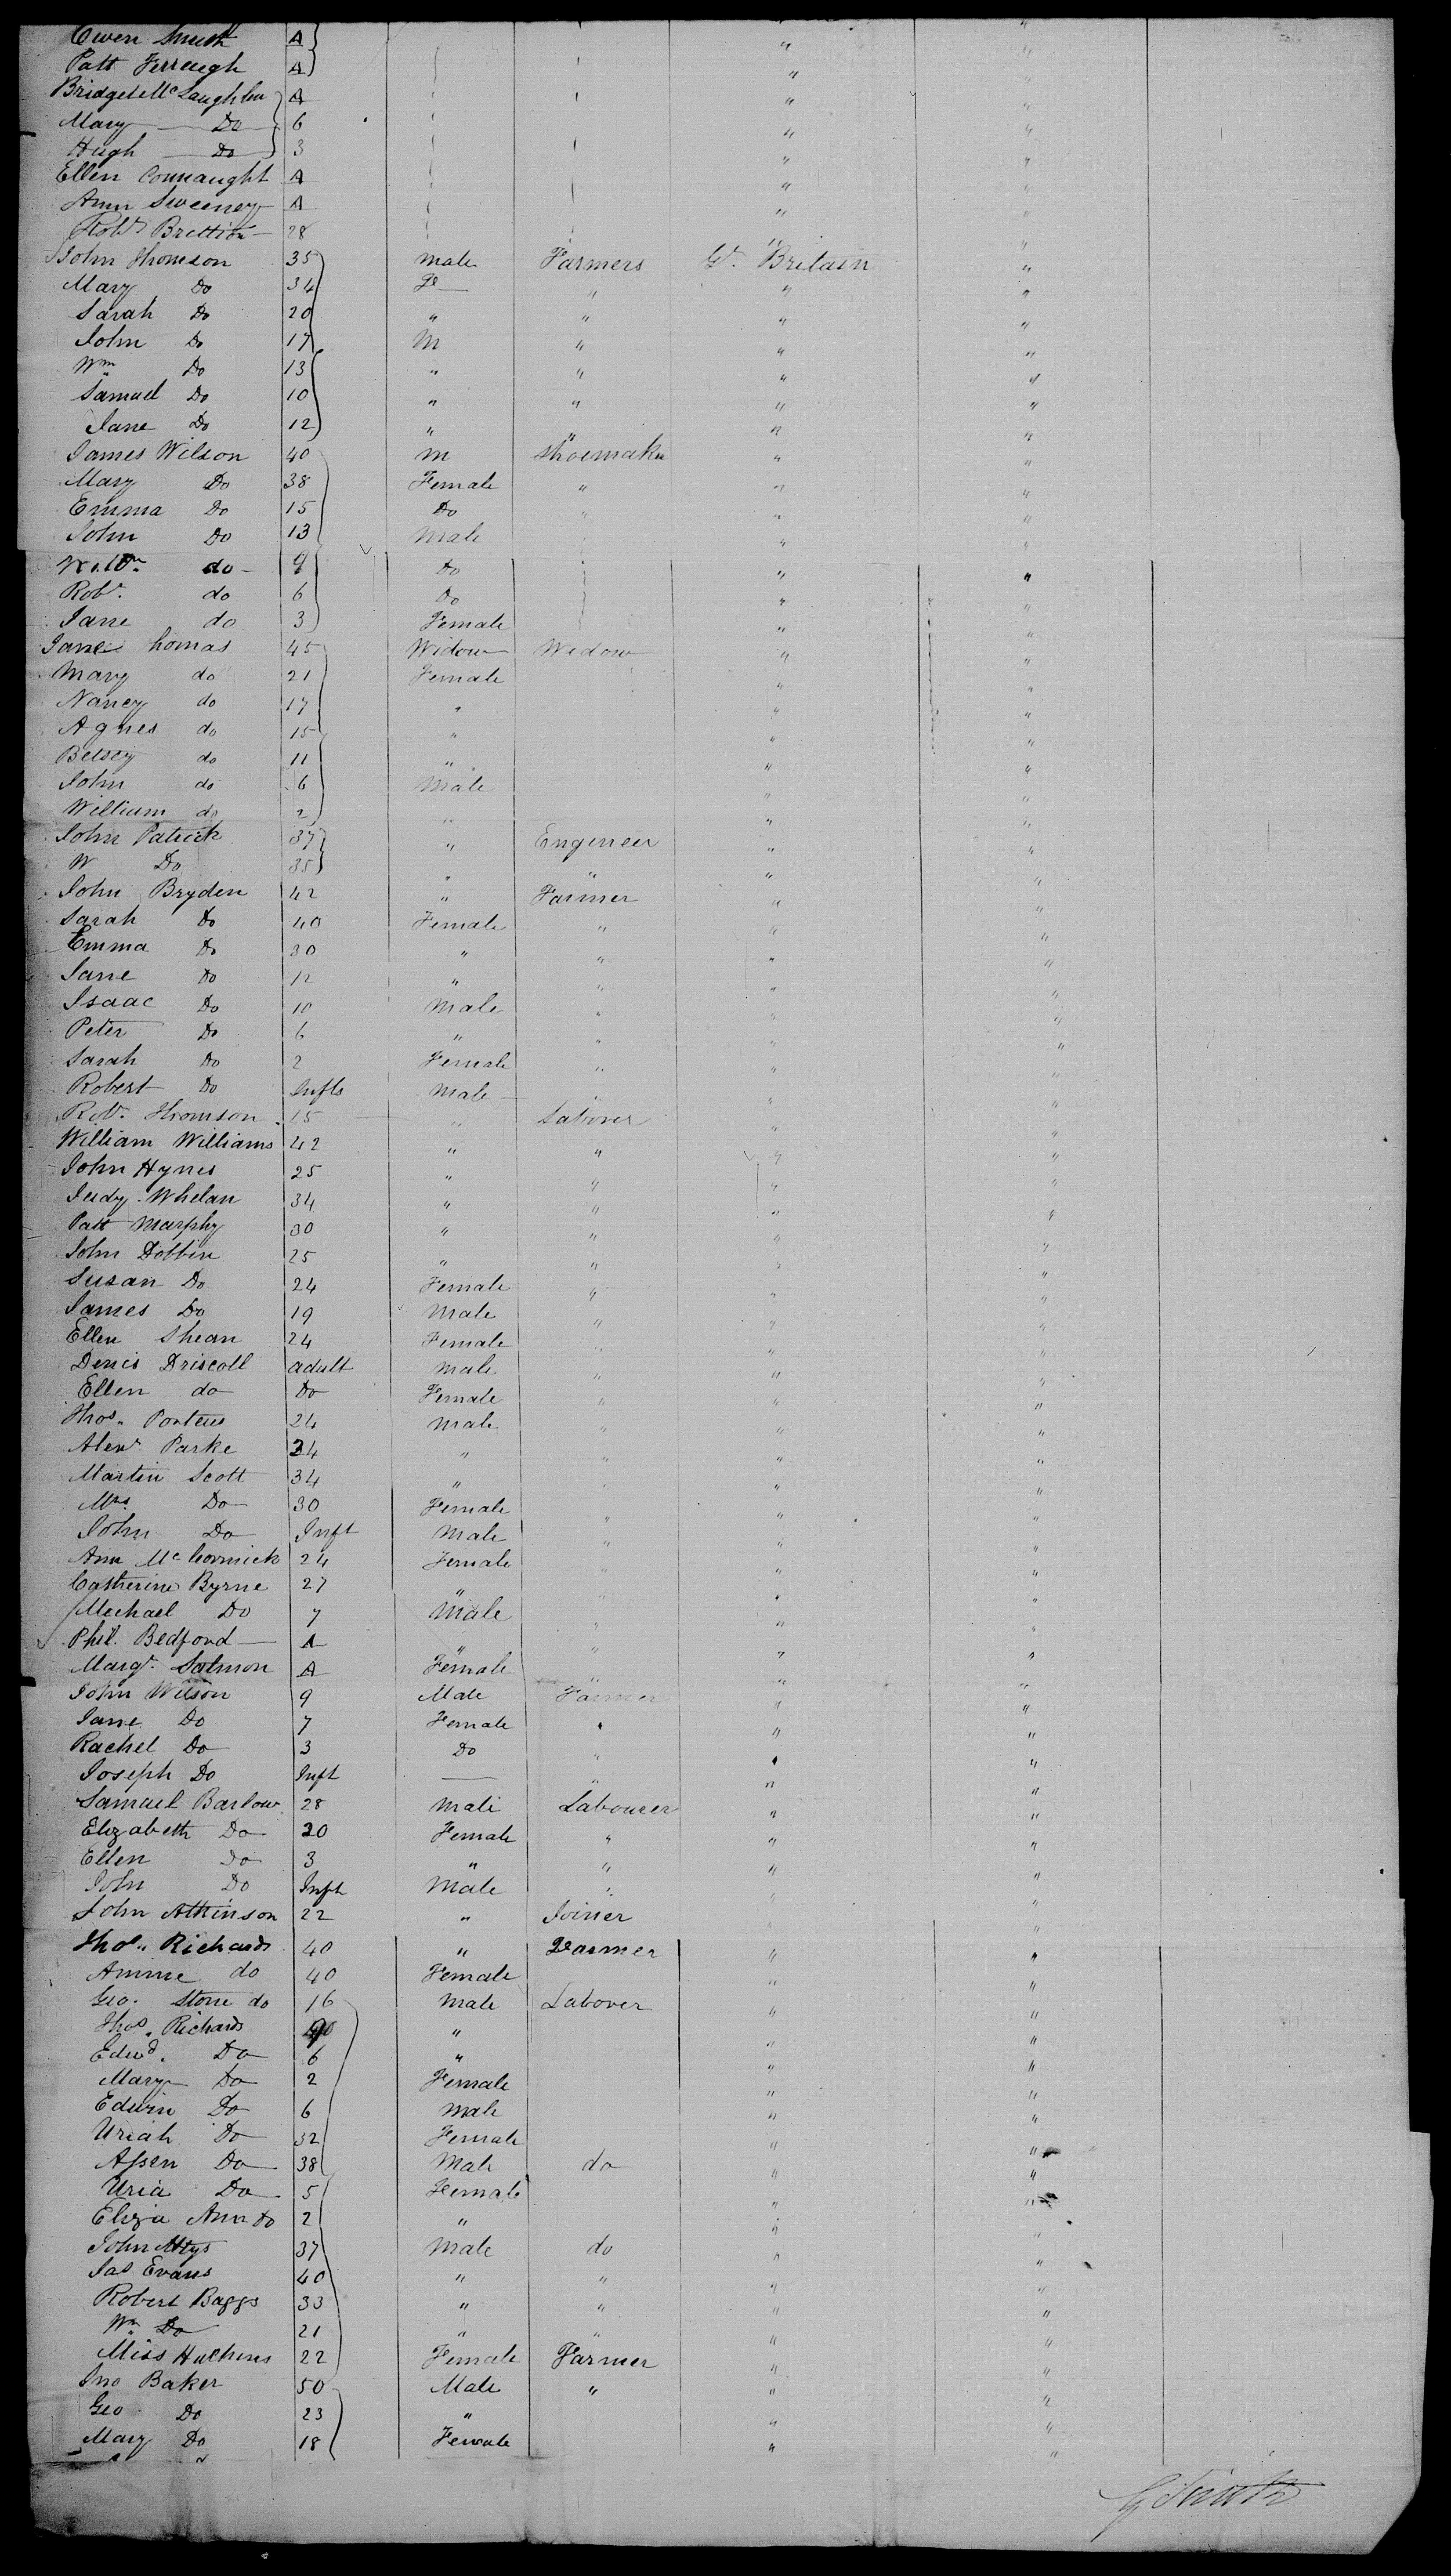 Owen Smith A "
Patt Ferreugh A " "
Bridget McLaughlin A " "
Mary Do 6 " "
Hugh Do 3 " "
Ellen Connaught A " "
Ann Sweeney A " "
Robt Bretton 28 " "
John Thomson 35 male Farmers Gt. Britain "
Mary Do 34 Fe " " "
Sarah Do 20 " " " "
John Do 17 M " " "
Wm Do 13 " " " "
Samuel Do 10 " " " "
Jane Do 12 " " " "
James Wilson 40 M Shoemaker " "
Mary Do 38 Female " " "
Emma Do 15 Do " " "
John Do 13 Male " "
Willm do 9 Do " "
Robt. do 6 Do " "
Jane do 3 Female " "
Jane homas 45 Widow Widow " "
Mary do 21 Female " "
Nancy do 17 " " "
Agnes do 15 " " "
Betsey do 11 " " "
John do 6 Male " "
William do 2 " " "
John Patrick 37 " Engineer " "
W Do 35 " " " "
John Bryden 42 " Farmer " "
Sarah Do 40 Female " " "
Emma Do 30 " " " "
Jane Do 12 " " " "
Isaac Do 10 Male " " "
Peter Do 6 " " " "
Sarah Do 2 Female " " "
Robert Do Infts Male " " "
Robt. Thomson 15 " Laborer " "
William Williams 42 " " " "
John Hynes 25 " " " "
Judy Whelan 34 " " " "
Patt Murphy 30 " " " "
John Dobbin 25 " " " "
Susan Do 24 Female " " "
James Do 19 Male " " "
Ellen Shean 24 Female " " "
Denis Driscoll adult Male " " "
Ellen do Do Female " " "
Thos. Porteus 24 Male " " "
Alexr Parke 34 " " " "
Martin Scott 34 " " " "
Mrs Do 30 Female " " "
John Do Inft Male " " "
Ann McCormick 24 Female " " "
Catherine Byrne 27 " " " "
Michael Do 7 Male " " "
Phil. Bedford A " " " "
Margt. Salmon A Female " "
John Wilson 9 Male Farmer " "
Jane Do 7 Female " " "
Rachel Do 3 Do " " "
Joseph Do Inft — " " "
Samuel Barlow 28 Male Labourer " "
Elizabeth Do 20 Female " " "
Ellen Do 3 " " " "
John Do Inft Male " " "
John Atkinson 22 " Joiner " "
Thos. Richards 40 " Farmer " "
Amme do 40 Female " "
Geo. Stone do 16 Male Laborer " "
Thos. Richards 9 " " "
Edwd. Do 6 " " "
Mary Do 2 Female " "
Edwin Do 6 Male " "
Uriah Do 32 Female " "
Do 38 Male do " "
Uria Do 5 Female " "
Eliza Ann Do 2 " " "
John 37 Male do " "
Jas Evans 40 " " " "
Robert Baggs 33 " " " "
Wm Do 21 " " " "
Miss Hutchins 22 Female Farmer " "
Jno Baker 50 Male " " "
Geo Do 23 " " "
Mary Do 18 Female " "